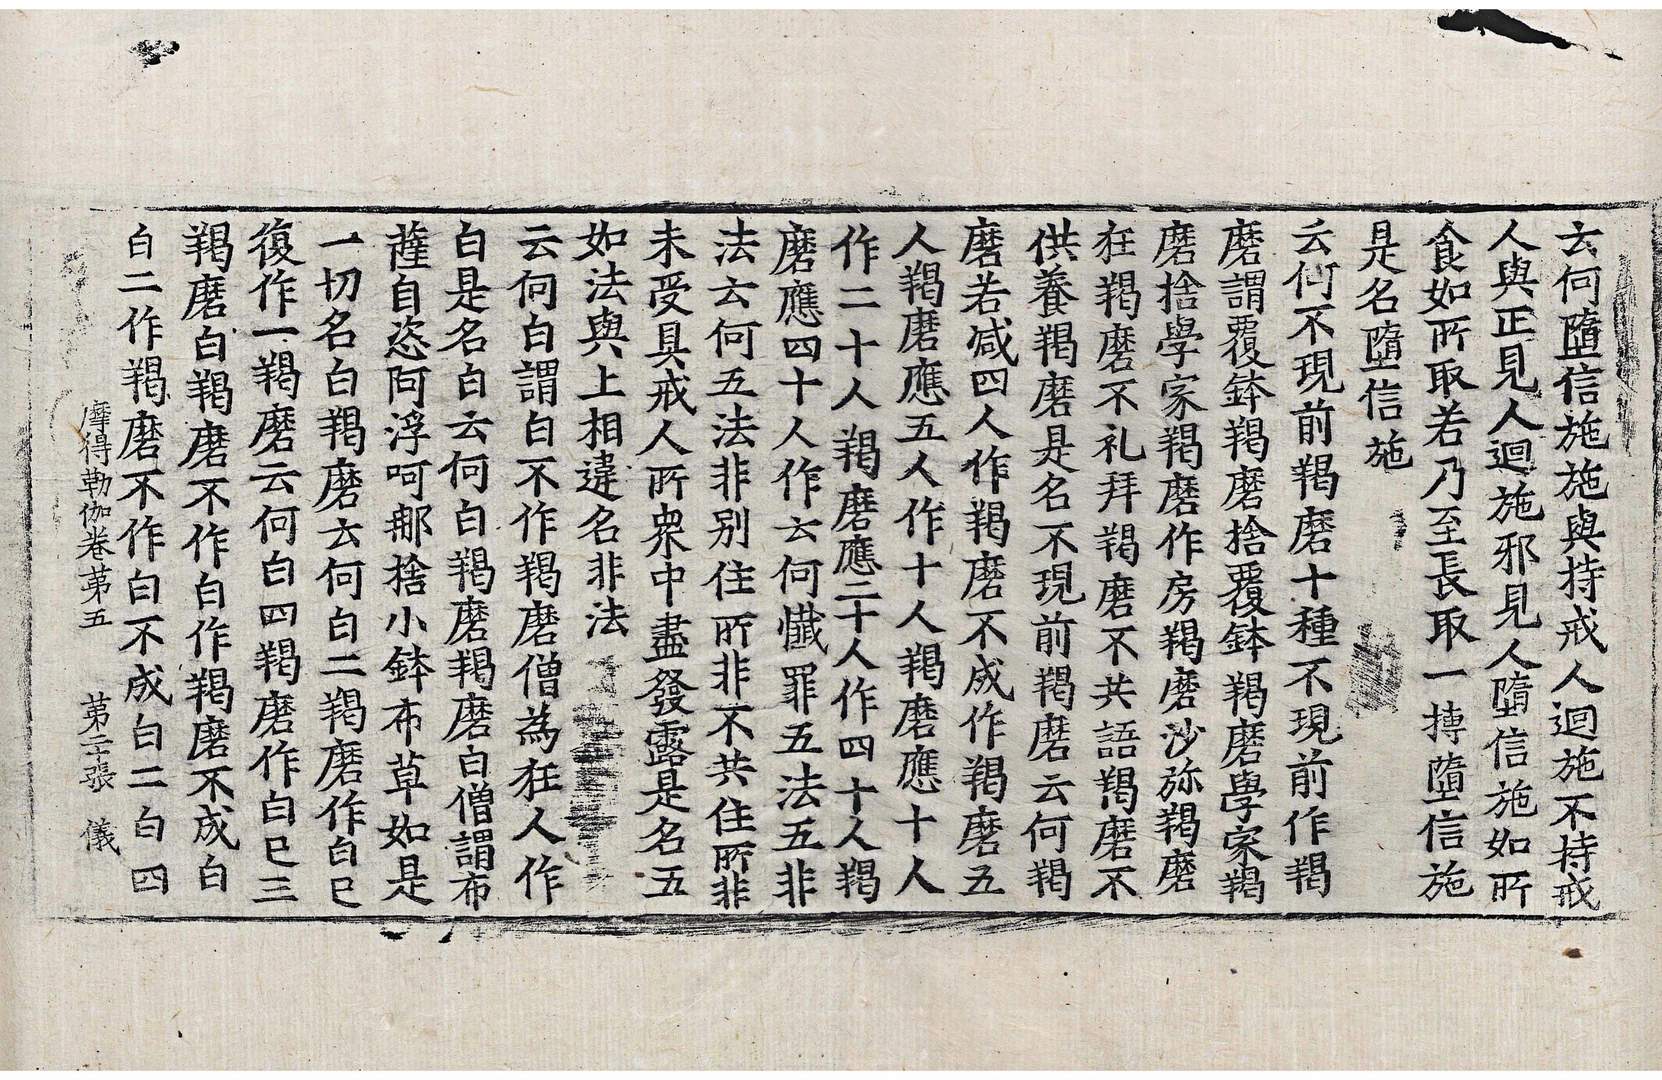 云何墮信施施與持戒人迴施不持戒
人與正見人迴施邪見人墮信施如所
食如所取若乃至長取一摶墮信施
是名墮信施
云何不現前羯磨十種不現前作羯
磨謂覆鉢羯磨捨覆鉢羯磨學家羯
磨捨學家羯磨作房羯磨沙弥羯磨
狂羯磨不礼拜羯磨不共語羯磨不
供養羯磨是名不現前羯磨云何羯
磨若减四人作羯磨不成作羯磨五
人羯磨應五人作十人羯磨應十人
作二十人羯磨應二十人作四十人羯
磨應四十人作云何懺罪五法五非
法云何五法非别住所非不共住所非
未受具戒人所衆中盡發露是名五
如法與上相違名非法
云何白謂白不作羯磨僧為狂人作
白是名白云何白羯磨羯磨白僧謂布
薩自恣阿浮呵那捨小鉢布草如是
一切名白羯磨云何白二羯磨作白已
復作一羯磨云何白四羯磨作白已三
羯磨白羯磨不作白作羯磨不成白
白二作羯磨不作白不成白二白四
摩得勒伽卷苐五 苐二十張 儀